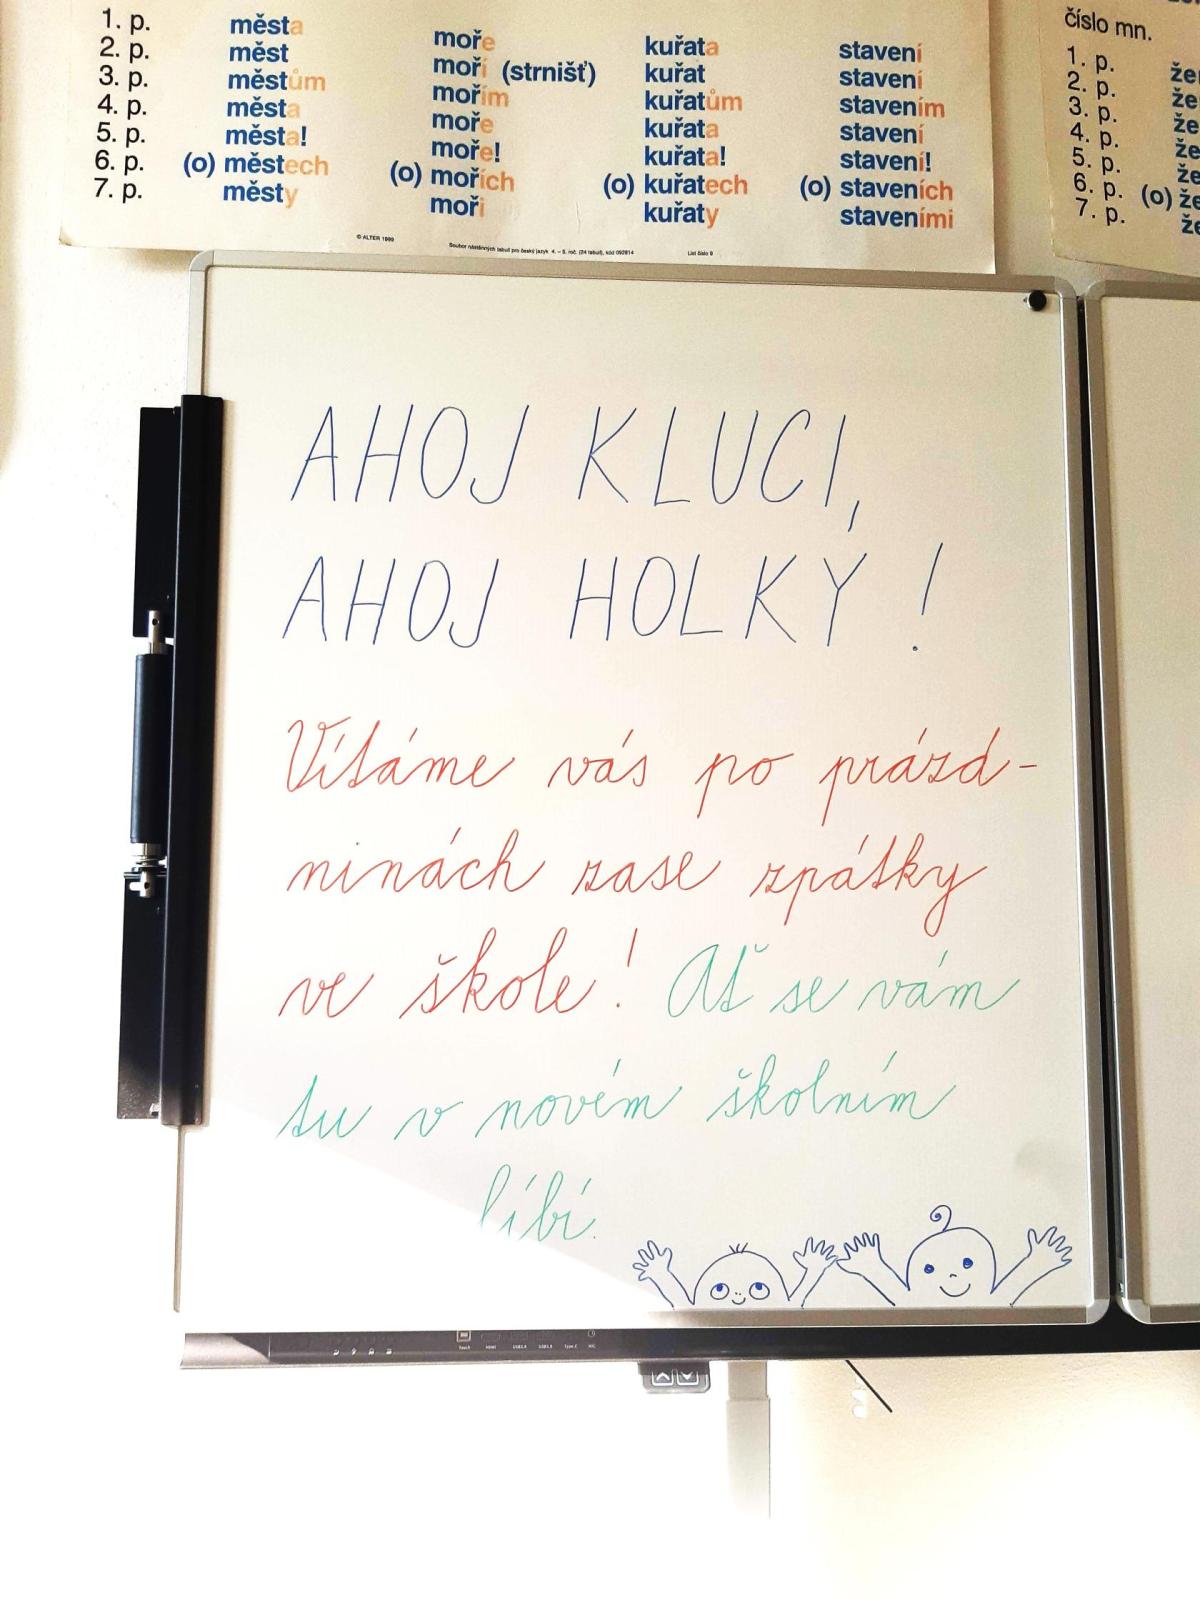 1. p. města moře kuřata stavení
2. p. měst moří (strnišť) kuřat stavení
3. p. městům mořím kuřatům stavením
4. p. města moře kuřata stavení
5. p. města! moře! kuřata! stavení!
6. p. (o) městech (o) mořích (o) kuřatech (o) staveních
7. p. městy moři kuřaty staveními
© ALTER 1999 Soubor nástěnných tabulí pro český jazyk 4. – 5. roč. (24 tabulí), kód 092814 List číslo 9
číslo mn.
1. p.
2. p. že
3. p. že
4. p. že
5. p. že
6. p. (o) že
7. p. že
AHOJ KLUCI,
AHOJ HOLKY!
Vítáme vás po prázd-
ninách zase zpátky
ve škole! Ať se vám
tu v novém školním
líbí.
Touch HDMI USB3.0 USB3.0 Type C MIC